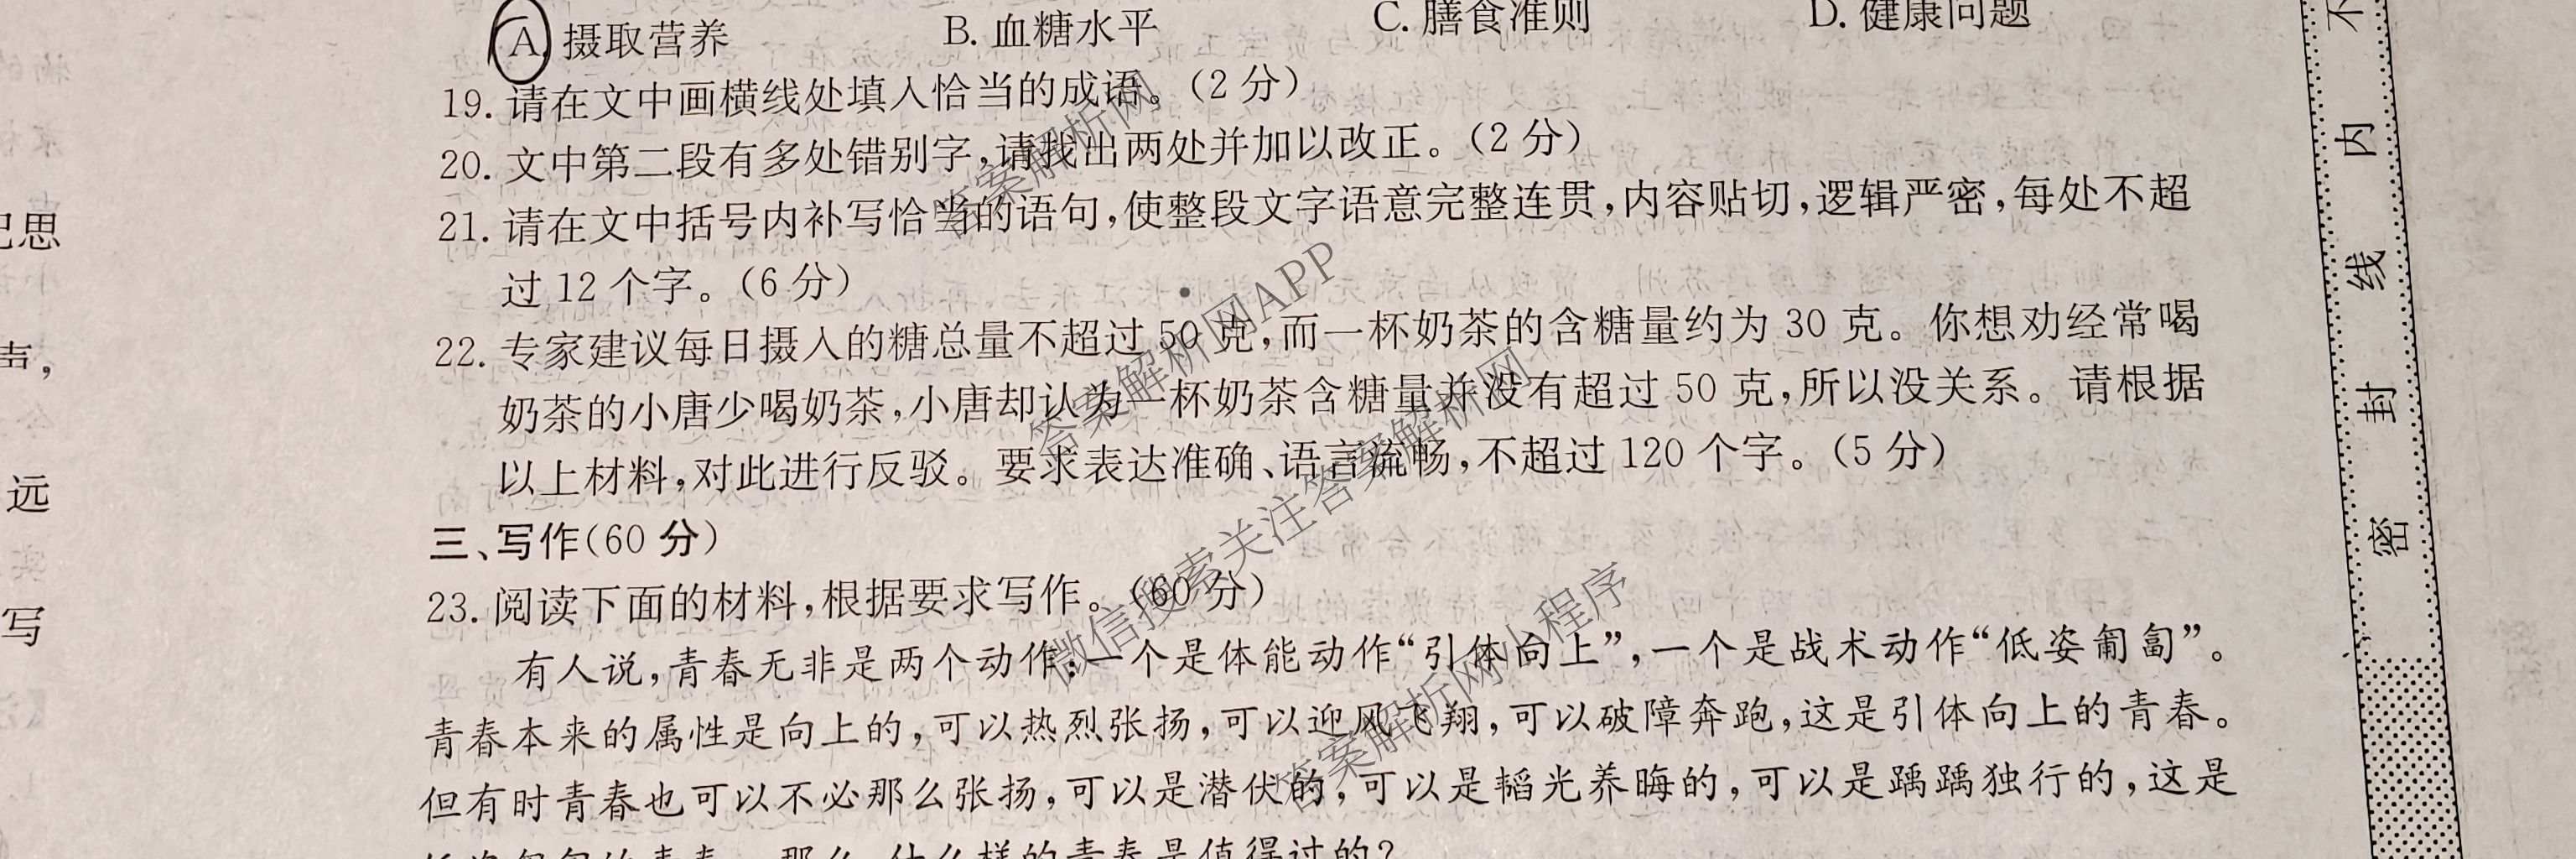 A. 摄取营养 B. 血糖水平 C. 膳食准则 D. 健康问题
19. 请在文中画横线处填入恰当的成语。(2 分)
20. 文中第二段有多处错别字,请找出两处并加以改正。(2 分)
21. 请在文中括号内补写恰当的语句,使整段文字语意完整连贯,内容贴切,逻辑严密,每处不超
过 12 个字。(6 分)
22. 专家建议每日摄入的糖总量不超过 50 克,而一杯奶茶的含糖量约为 30 克。你想劝经常喝
奶茶的小唐少喝奶茶,小唐却认为一杯奶茶含糖量并没有超过 50 克,所以没关系。请根据
以上材料,对此进行反驳。要求表达准确、语言流畅,不超过 120 个字。(5 分)
三、写作(60 分)
23. 阅读下面的材料,根据要求写作。(60 分)
有人说,青春无非是两个动作:一个是体能动作“引体向上”,一个是战术动作“低姿匍匐”。
青春本来的属性是向上的,可以热烈张扬,可以迎风飞翔,可以破障奔跑,这是引体向上的青春。
但有时青春也可以不必那么张扬,可以是潜伏的,可以是韬光养晦的,可以是踽踽独行的,这是
低姿匍匐的青春。那么,什么样的青春是值得过的?
思
声,
远
写
不
内
线
封
密
答案解析网
答案解析网APP
微信搜索关注答案解析网
答案解析网小程序